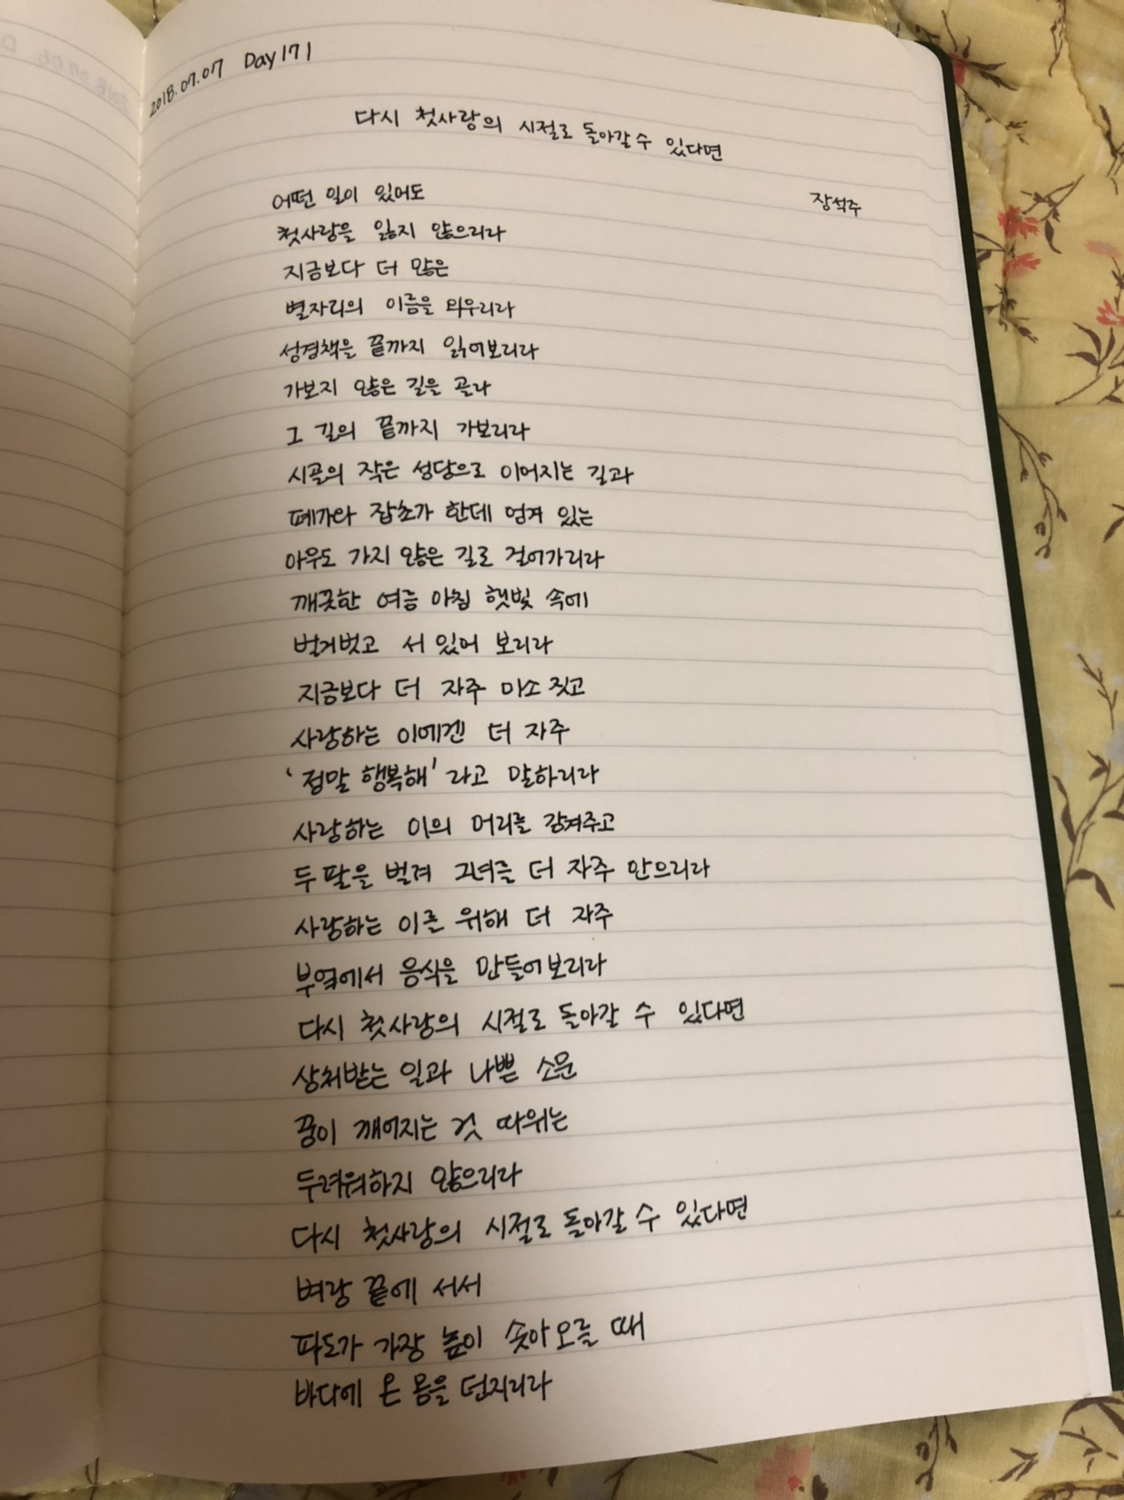 2018.07.07 Day 171
다시 첫사랑의 시절로 돌아갈 수 있다면
장석주
어떤 일이 있어도
첫사랑을 잃지 않으리라
지금보다 더 많은
별자리의 이름을 외우리라
성경책을 끝까지 읽어보리라
가보지 않은 길을 골라
그 길의 끝까지 가보리라
시골의 작은 성당으로 이어지는 길과
폐가와 잡초가 한데 엉켜 있는
아무도 가지 않은 길로 걸어가리라
깨끗한 여름 아침 햇빛 속에
벌거벗고 서 있어 보리라
지금보다 더 자주 미소 짓고
사랑하는 이에겐 더 자주
'정말 행복해'라고 말하리라
사랑하는 이의 머리를 감겨주고
두 팔을 벌려 그녀를 더 자주 안으리라
사랑하는 이를 위해 더 자주
부엌에서 음식을 만들어보리라
다시 첫사랑의 시절로 돌아갈 수 있다면
상처받는 일과 나쁜 소문
꿈이 깨어지는 것 따위는
두려워하지 않으리라
다시 첫사랑의 시절로 돌아갈 수 있다면
벼랑 끝에 서서
파도가 가장 높이 솟아오를 때
바다에 온 몸을 던지리라